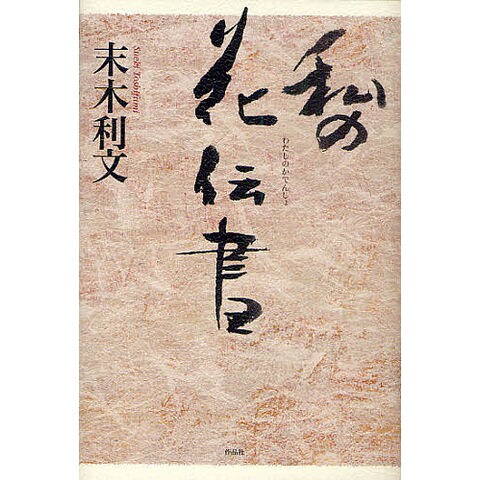 私の
花伝書
わたしのかでんしょ
末木利文
Sueki Toshifumi
作品社